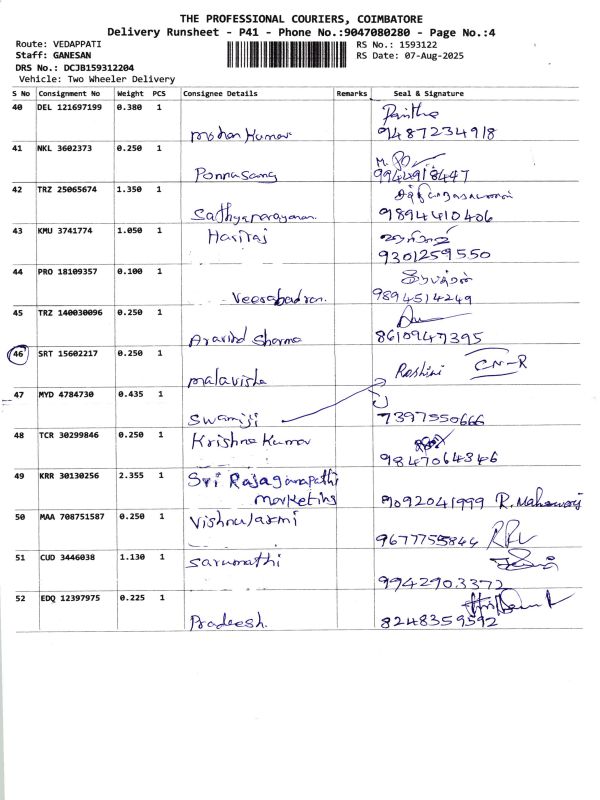 THE PROFESSIONAL COURIERS, COIMBATORE
Delivery Runsheet - P41 - Phone No.:9047080280 - Page No.:4
Route: VEDAPPATI
Staff: GANESAN
DRS No.: DCJB159312204
Vehicle: Two Wheeler Delivery
RS No.: 1593122
RS Date: 07-Aug-2025
S No Consignment No Weight PCS Consignee Details Remarks Seal & Signature
40 DEL 121697199 0.380 1
Mohan Kumar 9487234918
41 NKL 3602373 0.250 1
Ponnusang 9944918447
42 TRZ 25065674 1.350 1
Sathyanarayanan 9894410406
43 KMU 3741774 1.050 1 Hariraj
9301259550
44 PRO 18109357 0.100 1
Veerabadran. 9894514249
45 TRZ 140030096 0.250 1
Aravind Sharma 8610947395
46 SRT 15602217 0.250 1 Roshini CN-R
malavisha
47 MYD 4784730 0.435 1
Swamiji 7397550666
48 TCR 30299846 0.250 1 Krishna Kumar
9847064346
49 KRR 30130256 2.355 1 Sri Rajaganapathi
marketing 9092041999 R. Maheswari
50 MAA 708751587 0.250 1 Vishnulaxmi
9677755844
51 CUD 3446038 1.130 1 Sarumathi
9942903372
52 EDQ 12397975 0.225 1
Pradeesh. 8248359592